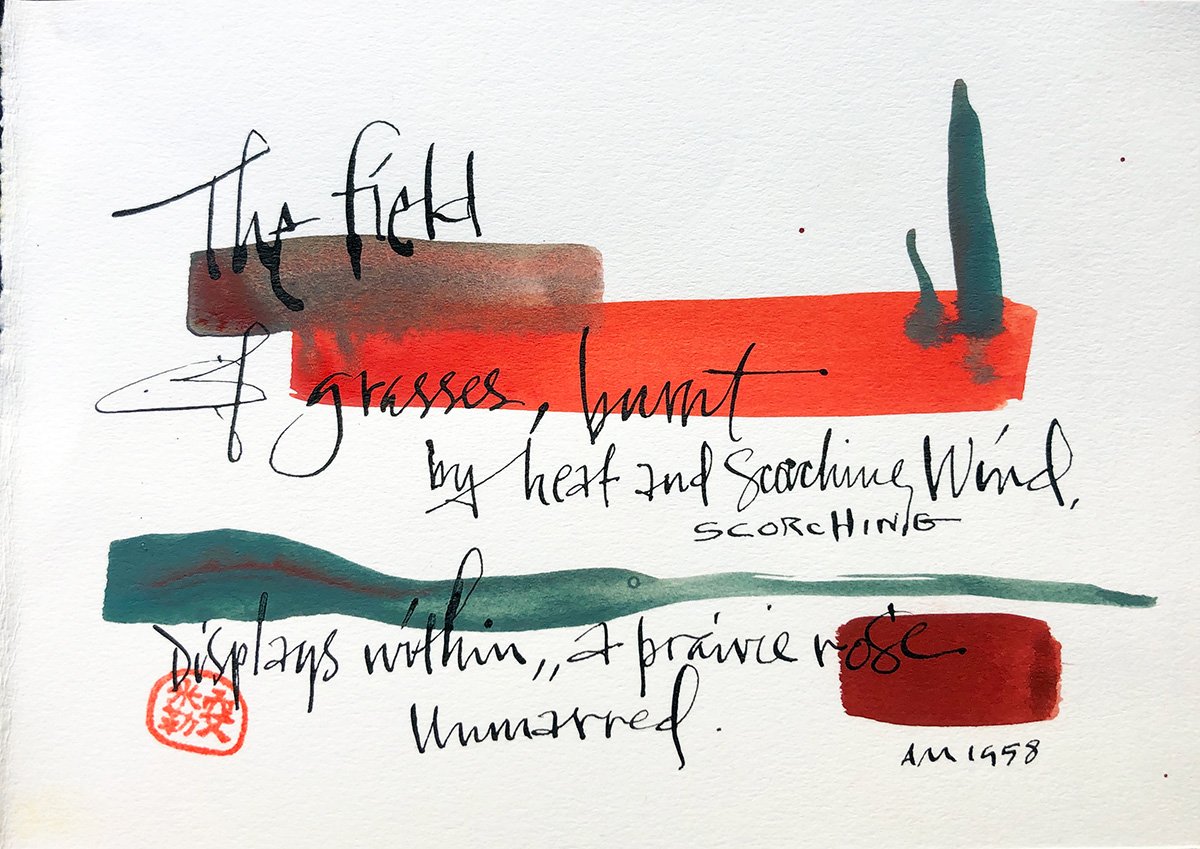 The field
of grasses, burnt
by heat and scorching Wind,
SCORCHING
Displays within,, a prairie rose
Unmarred.
AM 1958